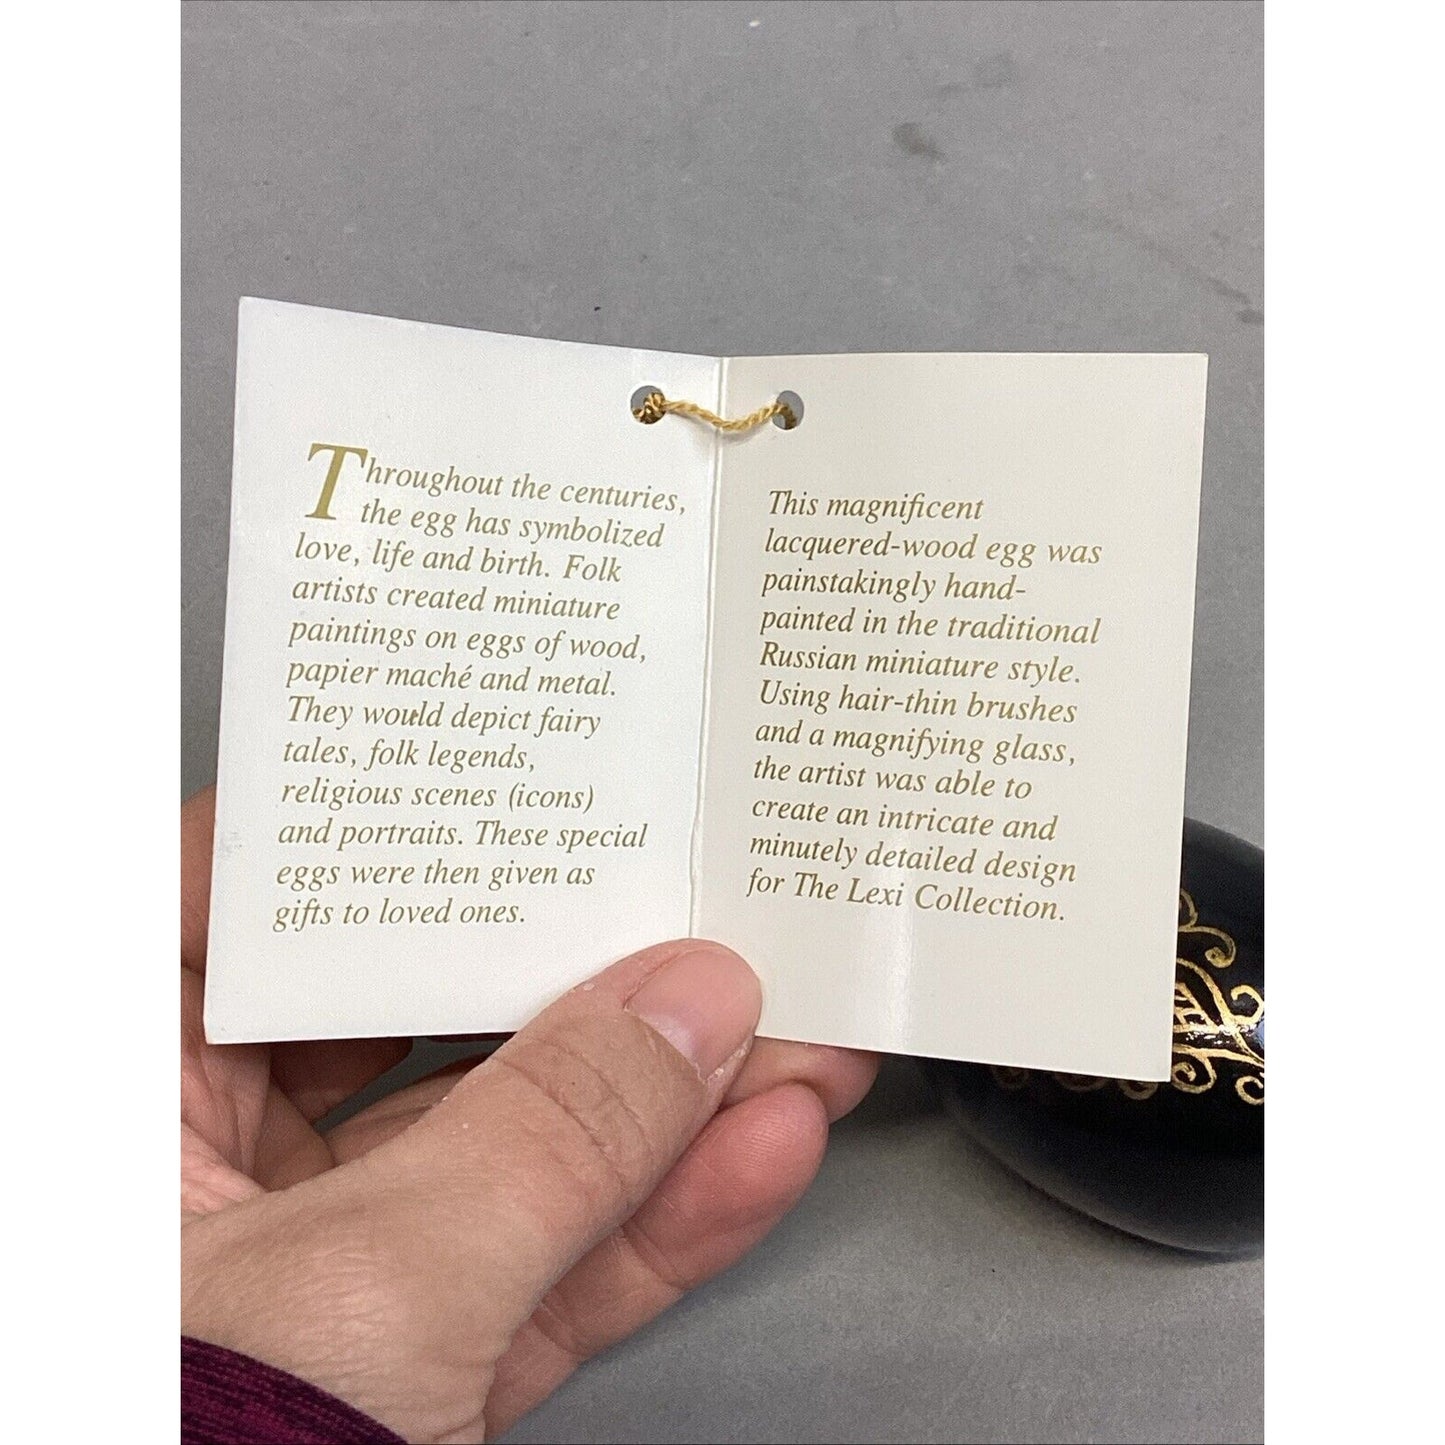 Throughout the centuries,
the egg has symbolized
love, life and birth. Folk
artists created miniature
paintings on eggs of wood,
papier maché and metal.
They would depict fairy
tales, folk legends,
religious scenes (icons)
and portraits. These special
eggs were then given as
gifts to loved ones.
This magnificent
lacquered-wood egg was
painstakingly hand-
painted in the traditional
Russian miniature style.
Using hair-thin brushes
and a magnifying glass,
the artist was able to
create an intricate and
minutely detailed design
for The Lexi Collection.